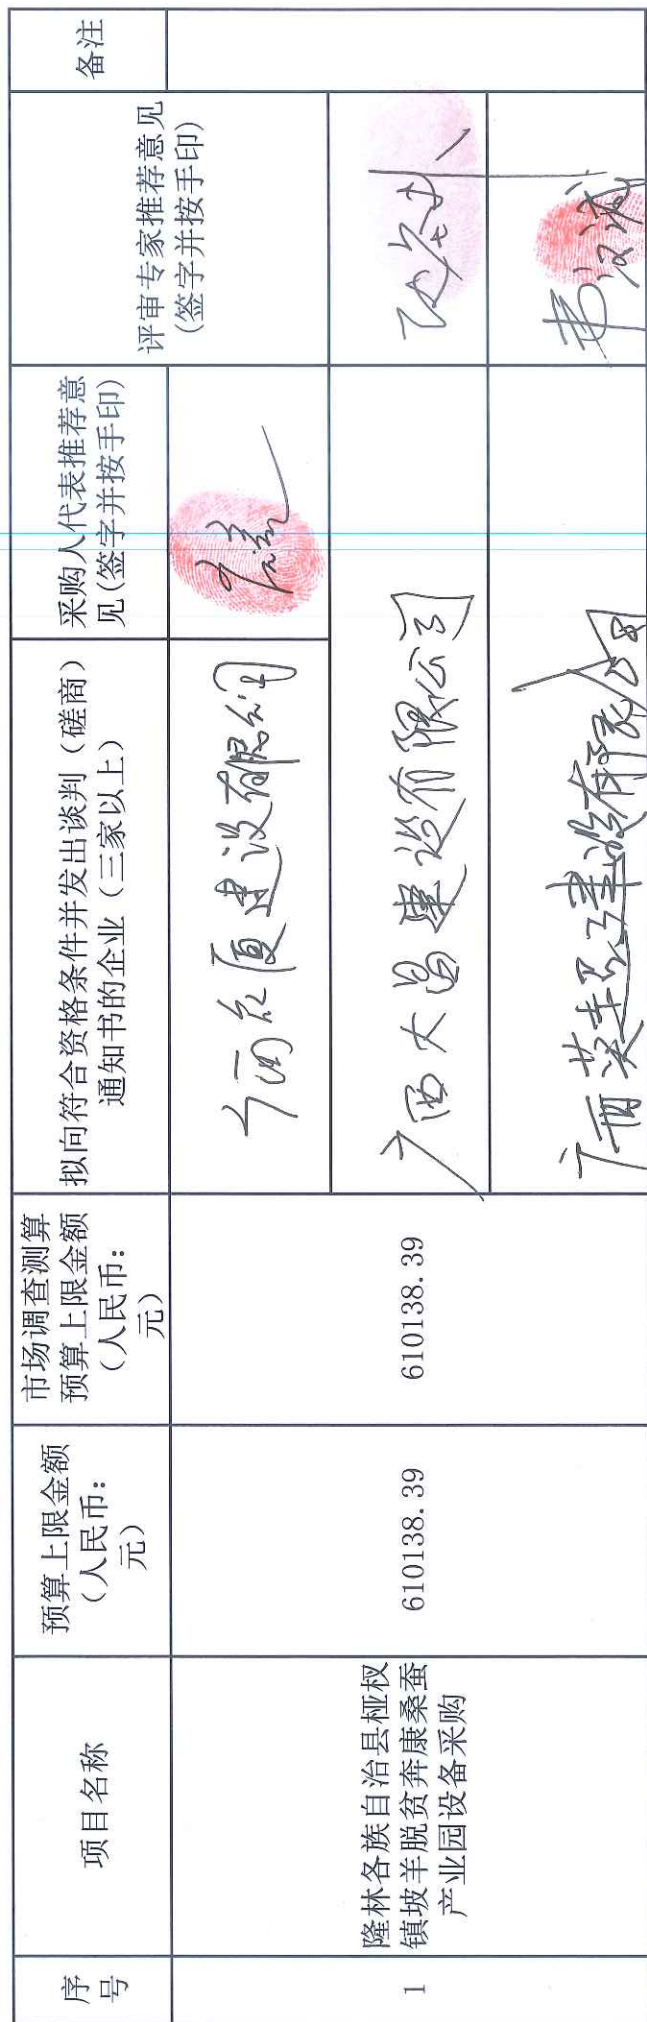 序
号
项目名称
预算上限金额
（人民币：
元）
市场调查测算
预算上限金额
（人民币：
元）
拟向符合资格条件并发出谈判（磋商）
通知书的企业（三家以上）
采购人代表推荐意
见(签字并按手印)
评审专家推荐意见
(签字并按手印)
备注
1
隆林各族自治县桠杈
镇坡羊脱贫奔康桑蚕
产业园设备采购
610138.39
610138.39
广西众厦建设有限公司
广西大昌建设有限公司